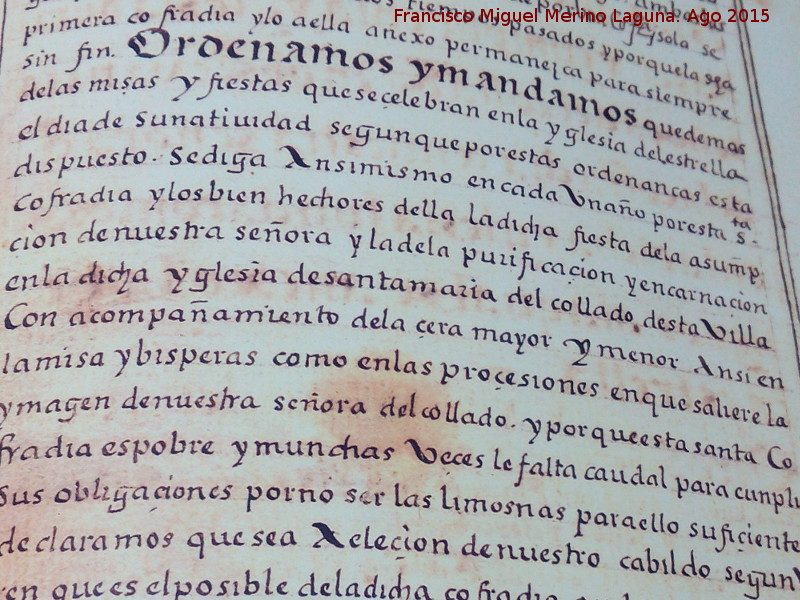 Francisco Miguel Merino Laguna. Ago 2015
tiempos pasados y porque la sea
primera cofradia y lo a ella anexo permanezca para siempre
sin fin. Ordenamos y mandamos que demas
delas misas y fiestas que se çelebran en la yglesia del estrella
el dia de su natiuidad segun que por estas ordenanças esta
dispuesto. Se diga Ansimismo en cada Un año por esta sta
Cofradia y los bien hechores della la dicha fiesta dela asump
cion de nuestra señora y la dela purificaçion y encarnaçion
en la dicha yglesia de santa maria del collado desta Villa
Con acompañamiento dela çera mayor y menor Ansi en
la misa y bisperas como en las proçesiones en que saliere la
ymagen de nuestra señora del collado. y porque esta santa Co
fradia es pobre y munchas Veces le falta caudal para cunplir
sus obligaçiones por no ser las limosnas para ello sufiçiente
declaramos que sea A eleçion de nuestro cabildo segun
que es el posible de la dicha cofradia